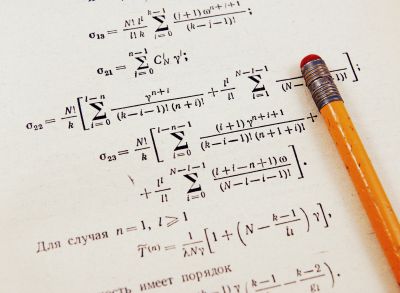 σ₁₃ = N! lˡ / l! k ∑ᵢ₌₀ᵏ⁻¹ (i+1) ωⁿ⁺ⁱ⁺¹ / (k−i−1)! ;
σ₂₁ = ∑ᵢ₌₀ⁿ⁻¹ Cᵢₙ γⁱ;
σ₂₂ = N! / k [ ∑ᵢ₌₀ˡ⁻ⁿ γⁿ⁺ⁱ / (k−i−1)! (n+i)! + lˡ / l! ∑ᵢ₌₁ᴺ⁻ˡ⁻¹ / (N )! ];
σ₂₃ = N! / k [ ∑ᵢ₌₀ˡ⁻ⁿ⁻¹ (i+1) γⁿ⁺ⁱ⁺¹ / (k−i−1)! (n+i+1)! +
+ lˡ / l! ∑ᵢ₌₀ᴺ⁻ˡ⁻¹ (l+i−n+1) ω / (N−l−i−1)! ].
Для случая n=1, l⩾1
T̃⁽ⁿ⁾ = 1 / λNγ [ 1 + ( N − k−1 / ) γ ],
имеет порядок
γ ( k−1 − k−2 ).